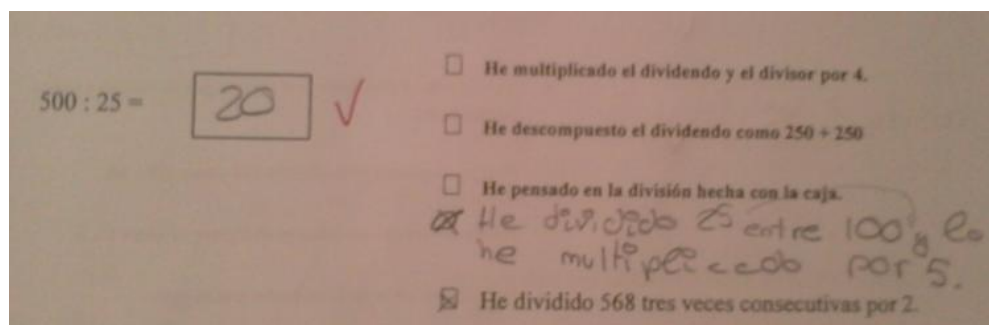 He multiplicado el dividendo y el divisor por 4.
500 : 25 = 20
He descompuesto el dividendo como 250 + 250
He pensado en la división hecha con la caja.
He dividido 25 entre 100 y lo
he multiplicado por 5.
He dividido 568 tres veces consecutivas por 2.